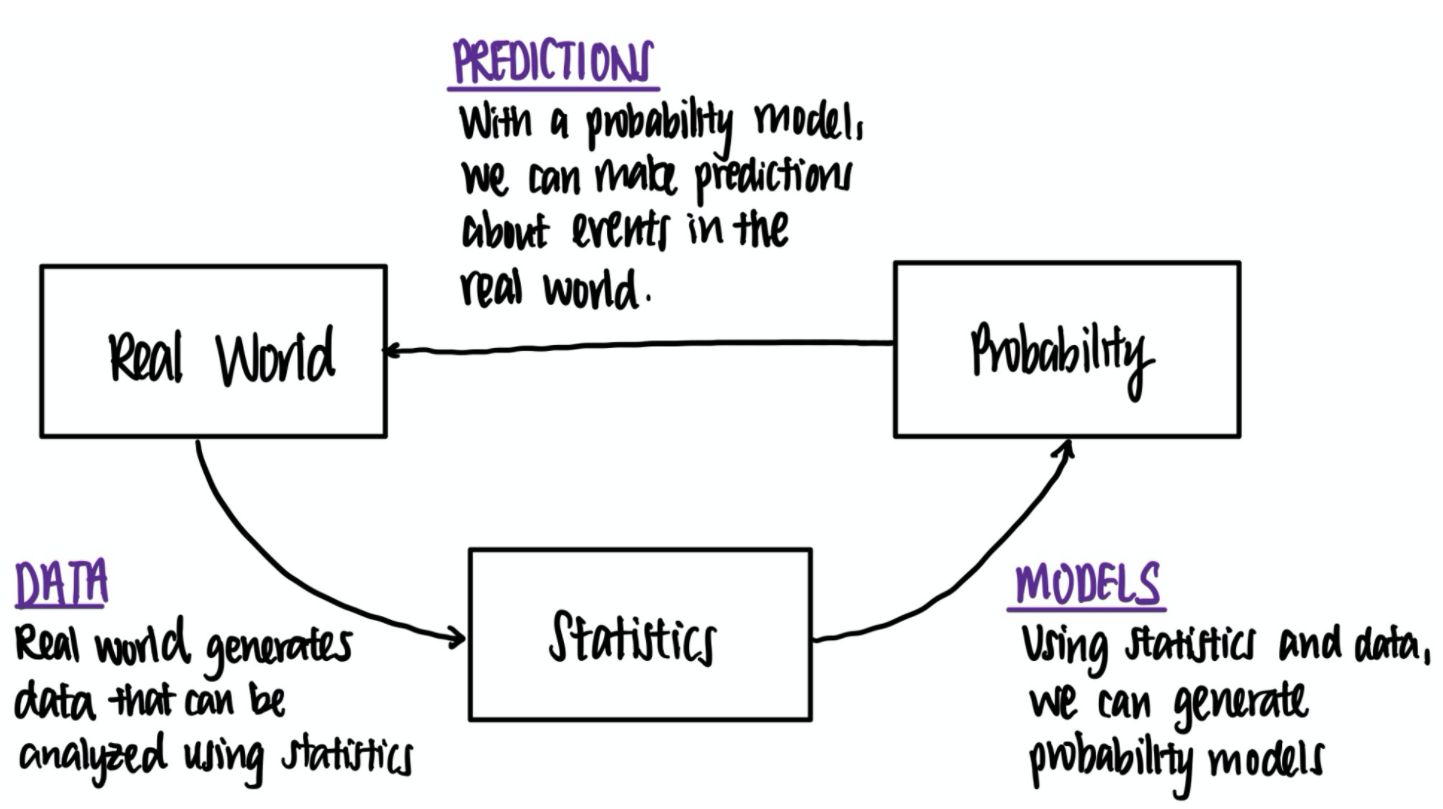 PREDICTIONS
With a probability model,
we can make predictions
about events in the
real world.
Real World
Probability
DATA
Real world generates
data that can be
analyzed using statistics
Statistics
MODELS
Using statistics and data,
we can generate
probability models